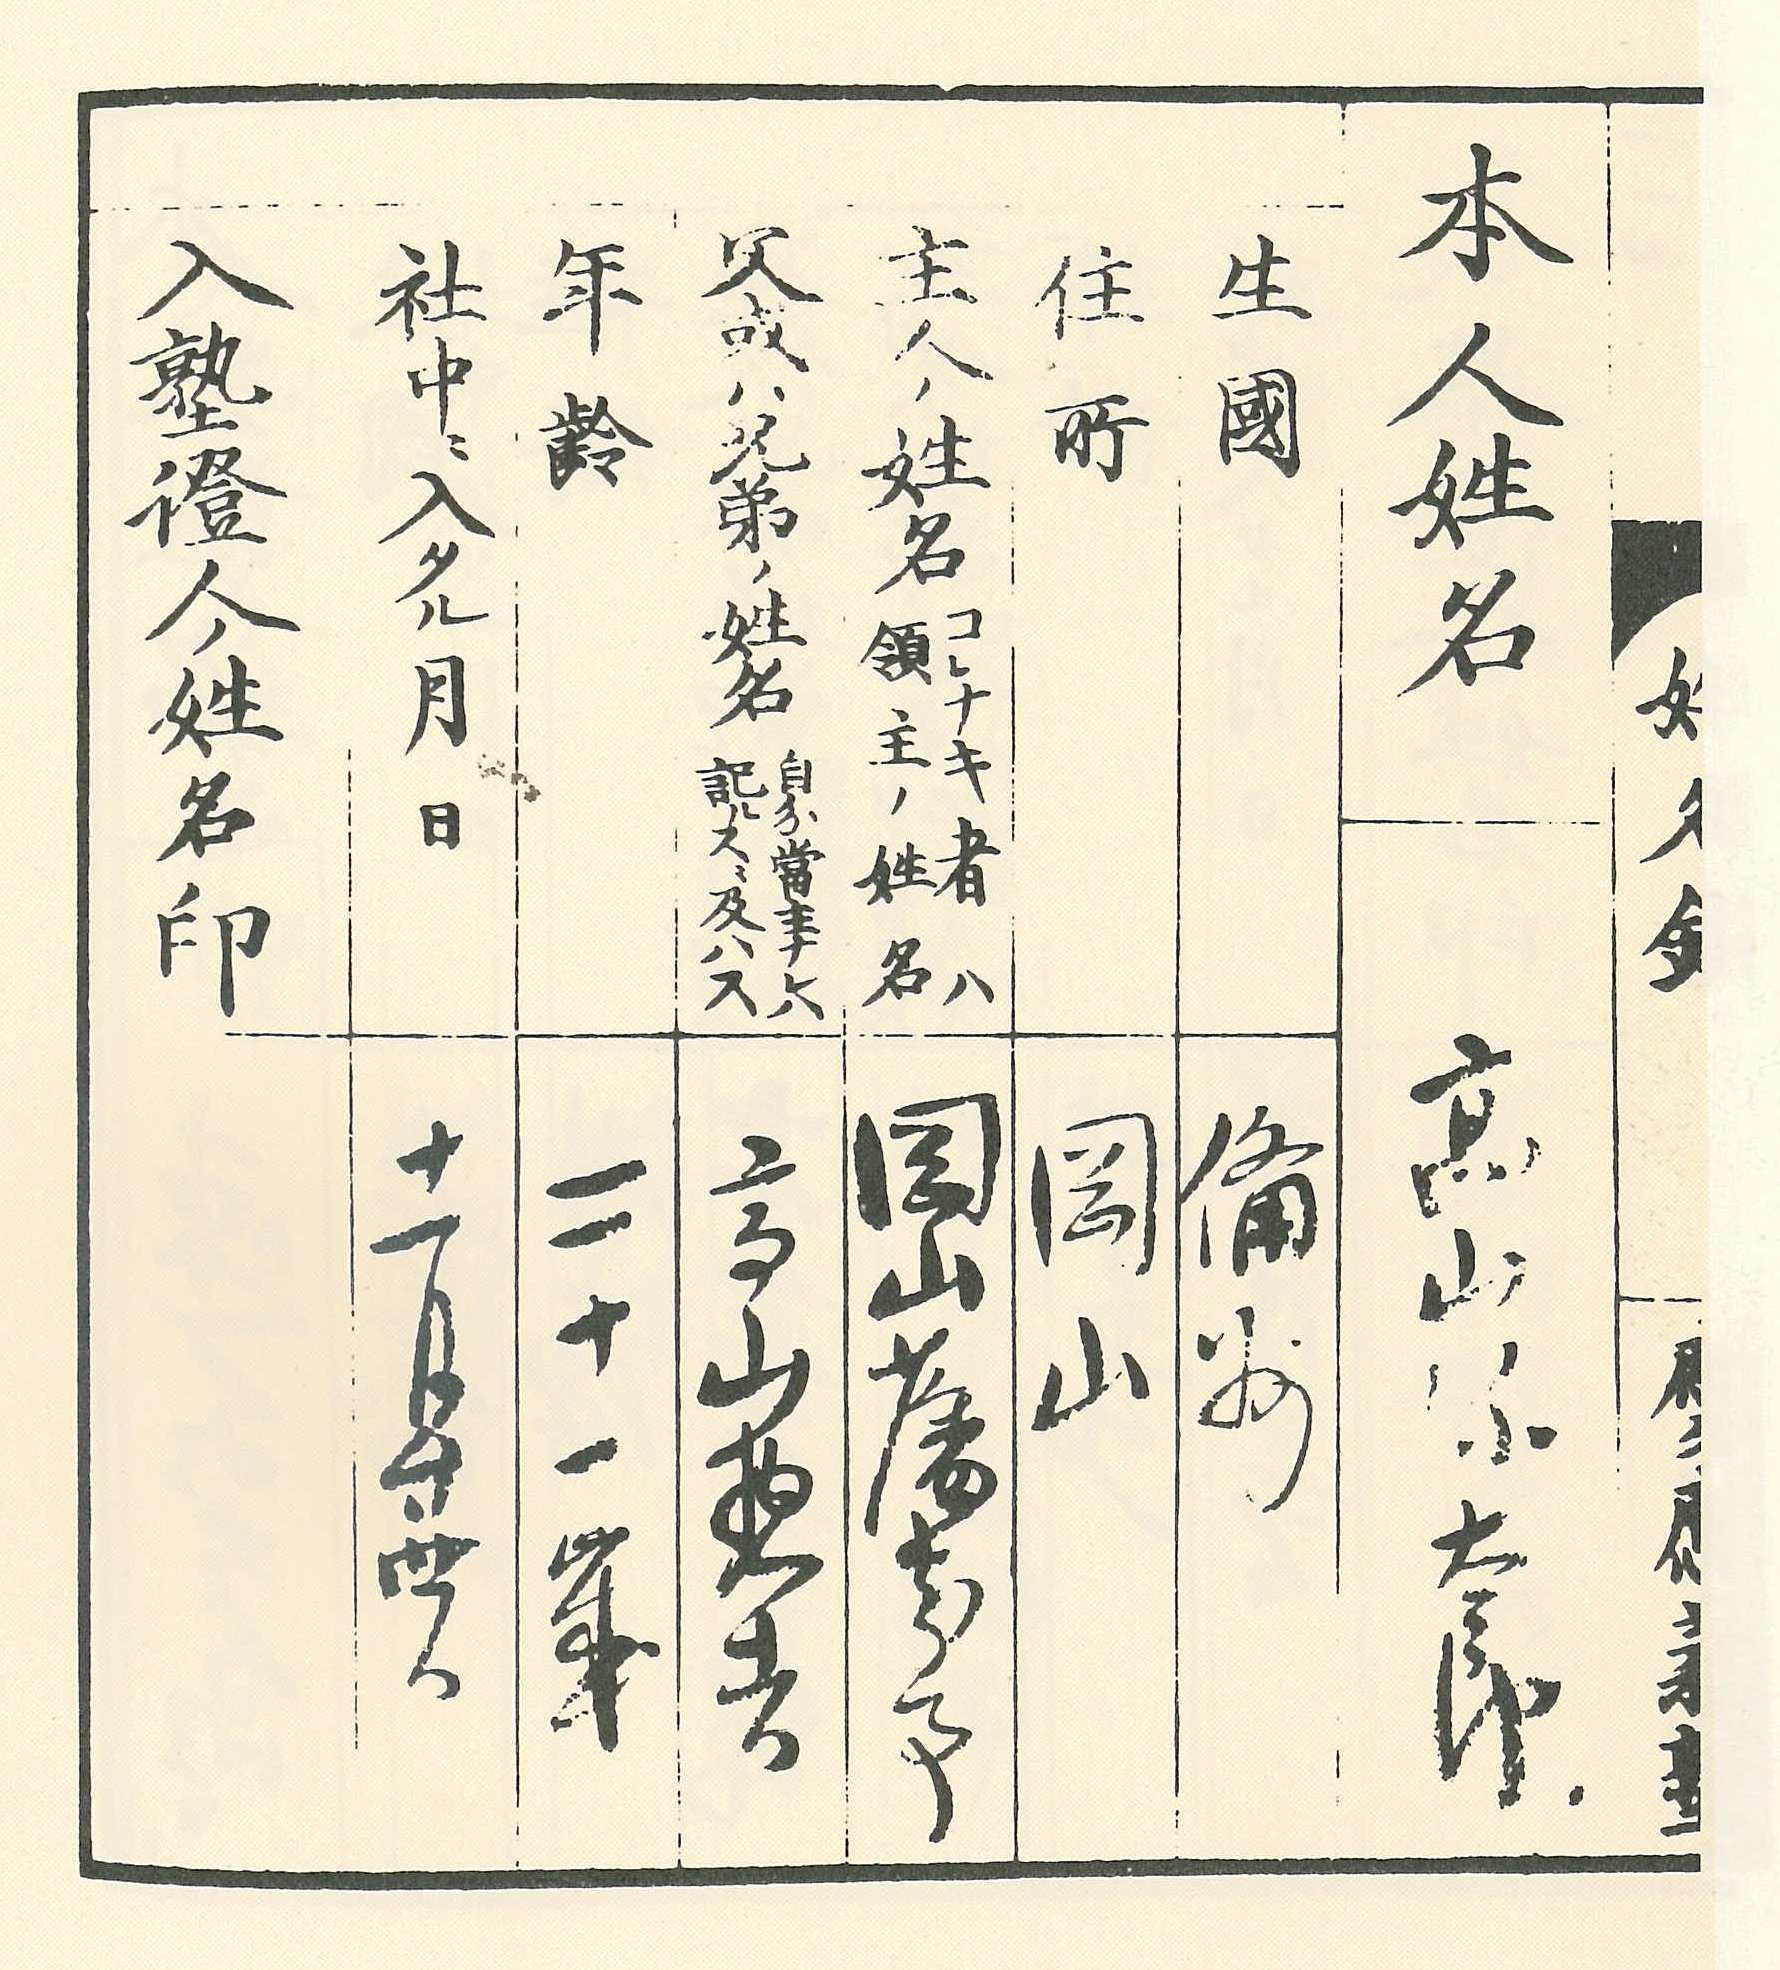 本人姓名 高山 太郎
生國 備
住所 岡山
主人ノ姓名 コレナキ者ハ領主ノ姓名 岡山藩知事
父或ハ兄弟ノ姓名 自分當主ナレハ記ルスニ及ハス 高山惣吉
年齢 二十一歳
社中ニ入タル月日 十一月廿四日
入塾證人ノ姓名印